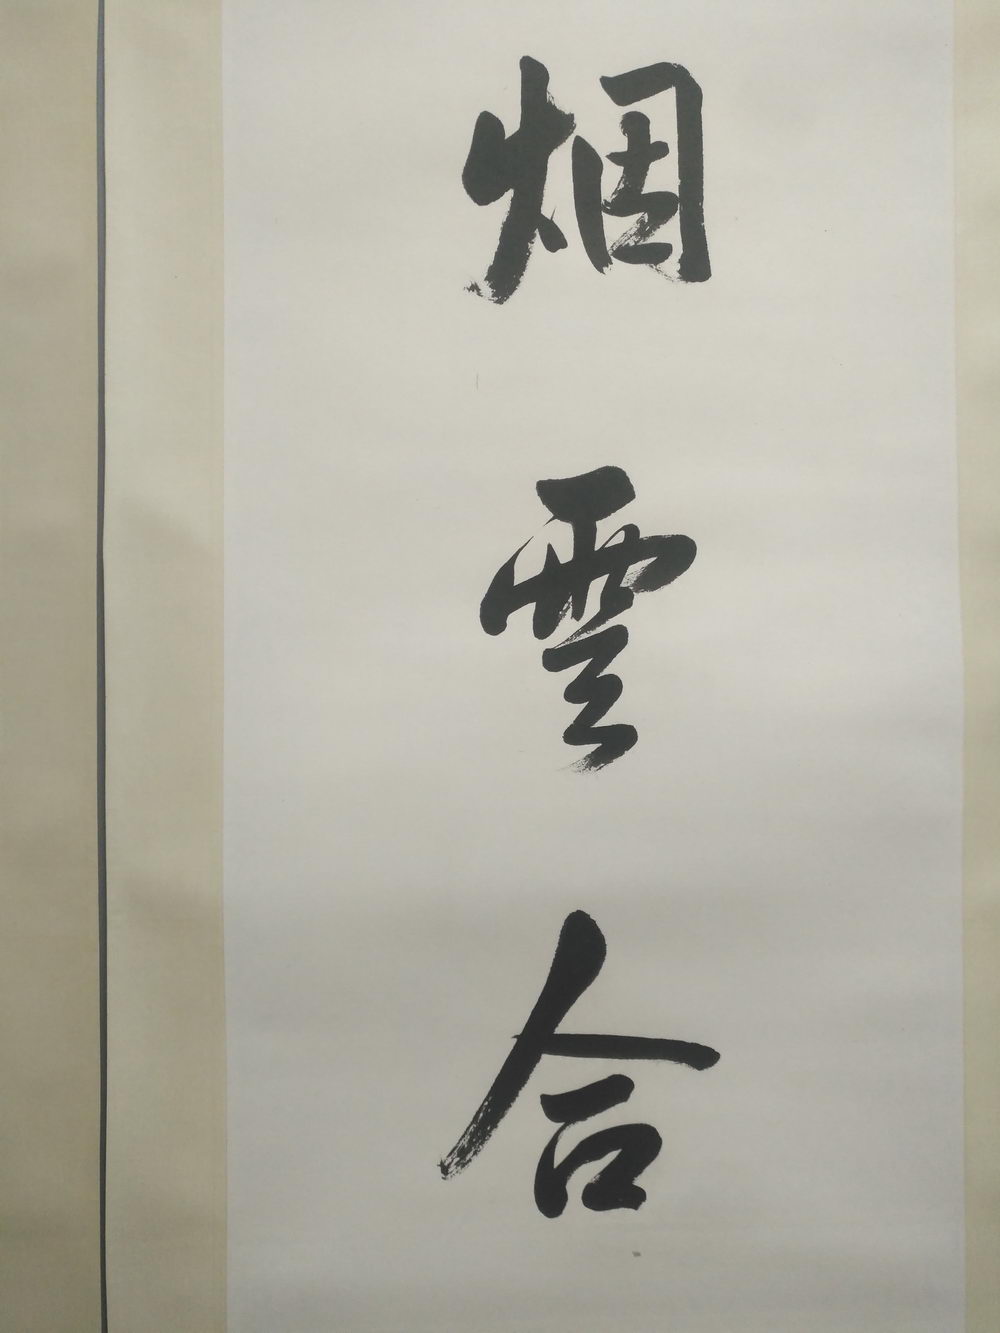 烟雲合